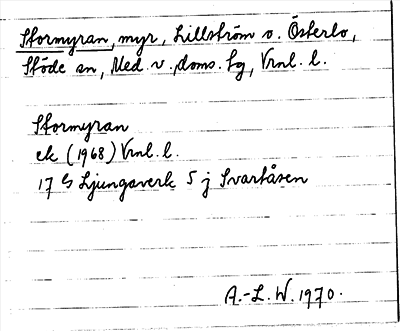 Stormyran, myr, Lillström o. Österlo,
Stöde sn, Med. v. doms. tg, Vrnl. l.
Stormyran
ek (1968) Vrnl. l.
17 G Ljungaverk 5 j Svartåsen
A.-L. W. 1970.